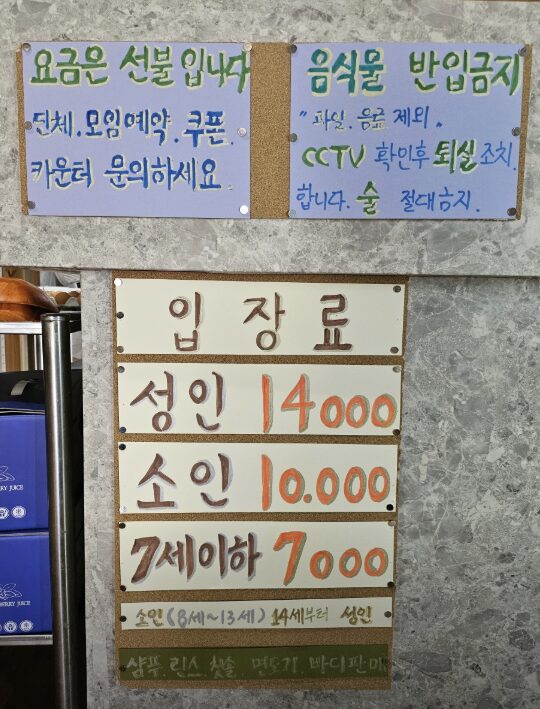 요금은 선불입니다
단체.모임예약.쿠폰.
카운터 문의하세요.
음식물 반입금지
"과일.음료 제외.
CCTV 확인후 퇴실조치.
합니다. 술 절대금지.
입장료
성인 14000
소인 10.000
7세이하 7000
소인(8세~13세) 14세부터 성인
샴푸.린스.칫솔. 면도기.바디판매
RRY JUICE
BERRY JUICE